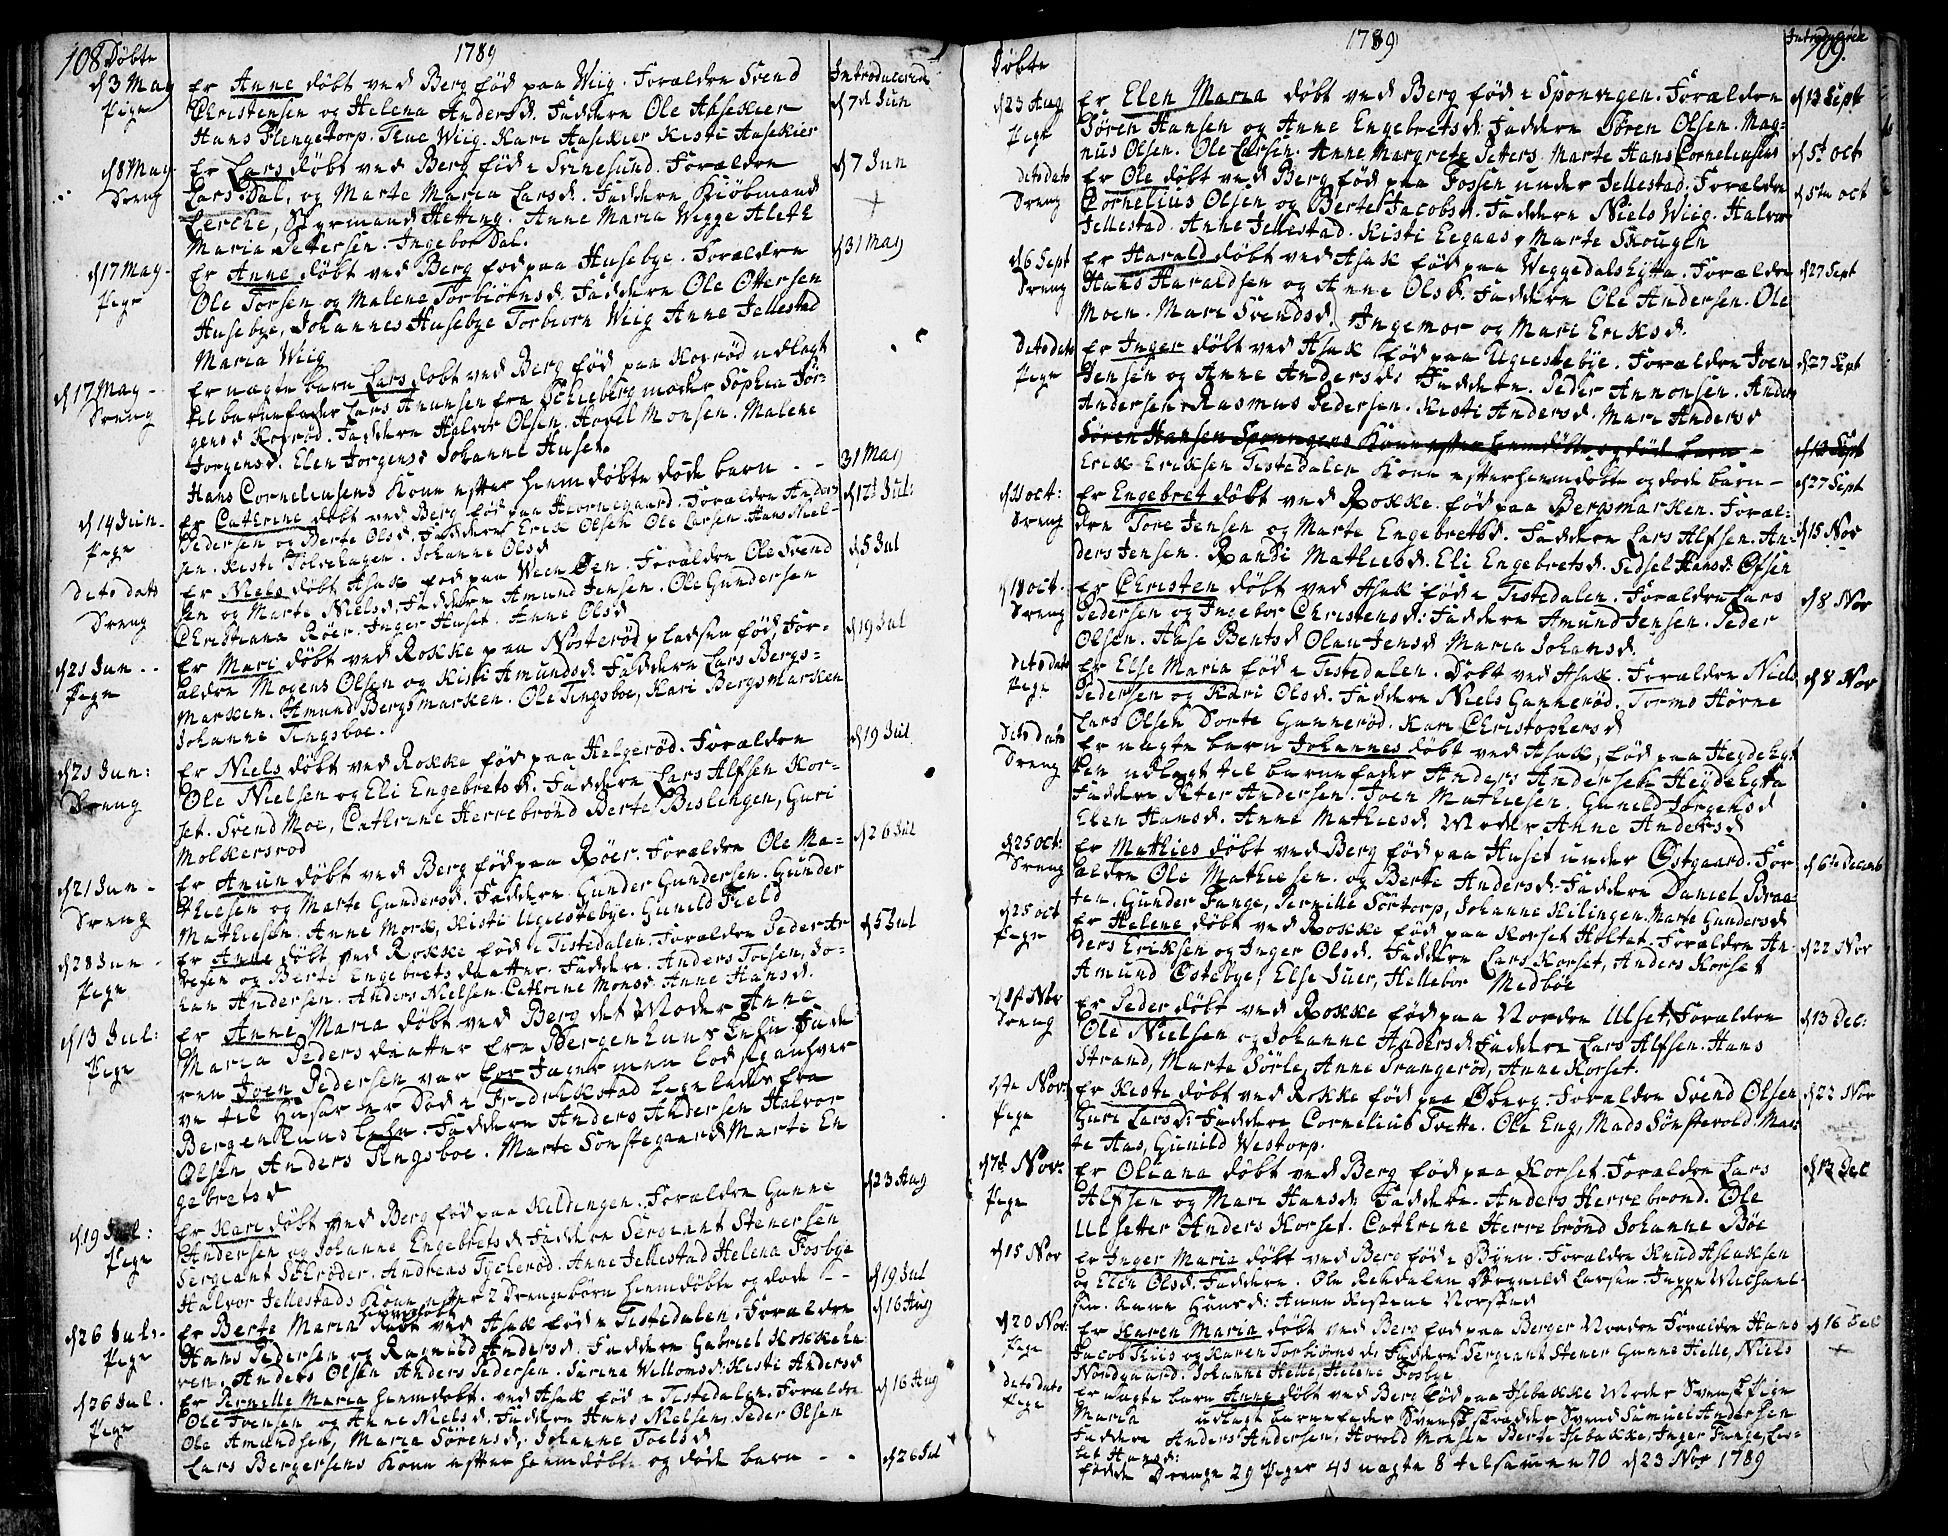 108 Døbte
1789
Introducered
d 3 May
Pige
Er Anne døbt ved Berg fød paa Wiig. Forældre Svend
Christensen og Helena Andersd. Faddere Ole Aasekier
Hans Flengetorp. True Wiig. Kari Aasekier Kisti Aasekier
d 7de Jun
d 8 May
Dreng
Er Lars døbt ved Berg fød i Svinesund. Forældre
Lars Dal, og Marte Maria Larsd. Faddere, Kiøbmand
Lerche, Styrmand Hetting. Anne Maria Wigge Aleth
Maria Petersen. Ingebor Dal.
d 7 Jun
+
d 17 May
Pige
Er Anne døbt ved Berg fød paa Husebye. Forældre
Ole Torsen og Malene Torbiørnsd. Faddere Ole Ottersen
Husebye, Johannes Husebye Torbiorn Wiig Anne Jellestad
Maria Wiig
d 31 May
d 17 May
Dreng
Er uægte barn Lars døbt ved Berg fød paa Kosrød udlagt
til barnefader Lars Anunsen fra Schieberg moder Sophia Jør-
gensd Kosrød. Faddere Halvor Olsen. Hovel Monsen. Malene
Jorgensd. Elen Jorgensd Johanne Huset.
Hans Corneliusens Kone efter hiemdøbte døde barn - -
31 May
d 14 Jun
Pige
Er Cathrine døbt ved Berg fød paa Hiornegaard. Forældre Anders
Pedersen og Berte Olsd. Faddere Erik Olsen Ole Larsen. Hans Niel-
sen. Kisti Tolvehagen. Johanne Olsd
d 12 Jul:
Dito dato
Dreng
Er Niels døbt Asak fød paa Ween Øen. Forældre Ole Svend
sen og Marte Nielsd. Faddere Amund Jensen. Ole Gundersen
Christiana Røer. Inger Huset. Anne Olsd
d 5 Jul
d 21 Jun
Pige
Er Mari døbt ved Rokke paa Nosterød pladsen fød, For-
ældre Mogens Olsen og Kisti Amundsd. Faddere Lars Bergs-
marken. Amund Bergsmarken. Ole Tingsboe, Kari Bergsmarken
Johanne Tingsboe.
d 19 Jul
d 21 Jun:
Dreng
Er Niels døbt ved Rokke fød paa Helgerød. Forældre
Ole Nielsen og Eli Engebretsd. Faddere Lars Alfsen Kor-
set. Svend Moe, Cathrine Herrebrønd Berte Bislingen, Guri
Molkersrod
d 19 Jul
d 21 Jun
Dreng
Er Anun døbt ved Berg fød paa Røer. Forældre Ole Ma-
thiesen og Marte Gundersd. Faddere Gunder Gundersen. Gunder
Mathiesen. Anne Mork, Kisti Ugiestebye. Gunild Field
d 26 Jul
d 28 Jun
Pige
Er Anne døbt ved Rokke fød i Tistedalen. Forældre Peder Ar
vesen og Berte Engebretsdaatter. Faddere. Anders Toesen, Jo-
han Andersen. Anders Nielsen. Cathrine Monsd. Anne Hansd.
d 5 Jul
d 13 Jul:
Pige
Er Anne Maria døbt ved Berg det Moder Anne
Maria Pedersdaatter fra Bergenhuus Lehn Fade
ren Joen Pedersen var for Jager men lod sig anhver
ve til Husar er Død i Fredrikstad ligeledes fra
Bergenhuus Lehn. Faddere Anders Andersen Halvor
Olsen Anders Tingsboe. Marte Sonstegaard Marte En
gebretsd
d 19 Jul:
Pige
Er Kari døbt ved Berg fød paa Keldingen. Forældre Gunne
Andersen og Johanne Engebretsd Faddere Sergeant Stenersen
Sergeant Schrøder. Andreas Tycherød. Anne Jellestad Helena Fosbye
Halvor Jellestads Kone efter 2 Drengebørn hiemdøbte og døde - -
d 23 Aug
d 19 Jul
d 26 Jul
Pige
Er Berte Maria hiemdøbt døbt ved Asak fød i Tistedalen. Forældre
Hans Pedersen og Ragnild Andersd. Faddere Gabriel Kokke
ren, Anders Olsen Anders Pedersen. Surina Wellomsd. Kisti Andersd
d 16 Aug
d 26 Jul.
Pige
Er Pernille Maria hiemdøbt ved Asak fød i Tistedalen. Forældre
Ole Ivensen og Anne Nielsd. Faddere Hans Nielsen, Peder Olsen
Ole Amundsen, Maria Sørensd. Johanne Toelsd
Lars Bergersens Kone efter hiemdøbte og døde barn - -
d 16 Aug
d 26 Jul
Døbte
1789
Introducered
109.
d 23 Aug
Pige
Er Elen Maria døbt ved Berg fød i Sponvigen. Forældre
Søren Hansen og Anne Engebretsd. Faddere Søren Olsen. Mag-
nus Olsen. Ole Larsen. Anne Margrete Peters. Marte Hans Corneliusens
d 13 Sept
d 5te oct
Dito dato
Dreng
Er Ole døbt ved Berg fød paa Fossen under Jellestad. Forældre
Cornelius Olsen og Berte Jacobsd. Faddere Niels Wiig. Halvor
Jellestad. Anne Jellestad. Kisti Eegaas, Marte Skougen
d 5te oct
d 6 Sept
Dreng
Er Harald døbt ved Asak fød paa Weggedalshytta. Forældre
Hans Haraldsen og Anne Olsd. Faddere Ole Andersen. Ole
Moen. Mari Svendsd. Ingemor og Mari Eriksd.
d 27 Sept
Dito dato
Pige
Er Inger døbt ved Asak fød paa Ugiestebye. Forældre Joen
Jensen og Anne Andersd. Faddere. Peder Annonsen. Anders
Andersen. Rasmus Pedersen. Kisti Andersd. Mari Andersd
d 27 Sept
Søren Hansen Sponvigens Kone efter hiemdøbte og død barn -
d 13 Sept
Erik Eriksen Tistedalen Kone efter hiemdøbte og døde barn -
d 27 Sept
d 11 oct:
Dreng
Er Engebret døbt ved Rokke fød paa Bergsmarken. Foræl-
dre Tore Jensen og Marte Engebretsd. Faddere Lars Alfsen. An-
ders Jensen. Randi Mathiesd. Eli Engebretsd. Sidsel Hansd. Ofsen
d 15 Nov
d 18 oct.
Dreng
Er Christen døbt ved Asak fød i Tistedalen. Forældre Lars
Pedersen og Ingebor Christensd. Faddere Amund Jensen. Peder
Olsen. Aase Bentsd Olau Jensd Maria Johansd.
d 8 Nov
Dito dato
Pige
Er Else Maria fød i Tistedalen. Døbt ved Asak. Forældre Niels
Pedersen og Kari Olsd. Faddere Niels Gunnerød. Tormo Hørne
Lars Olsen Dorte Gunnerød. Kari Christophersd
d 8 Nov
Dito dato
Dreng
Er uægte barn Johannes døbt ved Asak, fød paa Heydehyt
ten udlagt til barnefader Anders Andersen Heydehytta
Faddere Peter Andersen. Joen Mathiesen. Gunild Jørgensd
Elen Hansd. Anne Mathiesd. Moder Anne Andersd
d 25 oct:
Dreng
Er Mathies døbt ved Berg fød paa Huset under Østgaard. For
ældre Ole Mathiesen. og Berte Andersd. Faddere Daniel Braa-
ten. Gunder Funge, Pernille Sørtorp, Johanne Kilingen. Marte Gundersd
d 6te Decemb
d 25 oct
Pige
Er Helene døbt ved Rokke fød paa Korset Holtet. Forældre An-
ders Eriksen og Inger Olsd. Faddere Lars Korset, Anders Korset
Amund Østebye, Else Juer, Hellebor Medbøe
d 22 Nov
d 1ste Nov
Dreng
Er Peder døbt ved Rokke fød paa Norden Ulset. Forældre
Ole Nielsen og Johanne Andersd. Faddere Lars Alfsen. Hans
Strand, Marte Sørle, Anne Prangerød, Anne Korset.
d 13 Dec:
d 1ste Nov
Pige
Er Kiste døbt ved Rokke fød paa Øberg. Forældre Svend Olsen
Guri Larsd: Faddere Cornelius Tvette. Ole Eng, Mads Sønsterold. Mar
te Aas, Gunild Westorp.
d 22 Nov
d 7de Nov:
Pige
Er Oliana døbt ved Berg fød paa Korset. Forældre Lars
Alfsen og Mari Hansd. Faddere. Anders Herrebrønd. Ole
Ulsetter Anders Korset. Cathrine Herrebrønd Johanne Bøe
d 13 Dec
d 15 Nov
Er Inger Maria døbt ved Berg fød i Byen. Forældre Knud Asaksen
og Elen Olsd. Faddere. Ole Rekdalen Bergnild Larsen. Juppe Michael
sen. Anne Hansd: Anne Kistine Norstad
d 20 Nov:
Pige
Er Karen Maria døbt ved Berg fød paa Berger Norden Forældre Hans
Jacob Thiis og Karen Torbiørnsd. Faddere Sergeant Stener Gunne Helle, Niels
Nordgaard. Johanne Helle, Helene Fosbye
d 16 Dec
+
Dito dato
Pige
Er uægte barn Anne døbt ved Berg fød paa Isebakke Moder Svensk Pige
Maria udlagt barnefader Svensk Skrædder Svend Samuel Andersen
Faddere Anders Andersen, Harold Monsen Berte Isebakke, Inger Funge, Lis-
bet Hansd:
fødde Drenge 29 Piger 41 uægte 8 tilsamen 70 d 23 Nov 1789